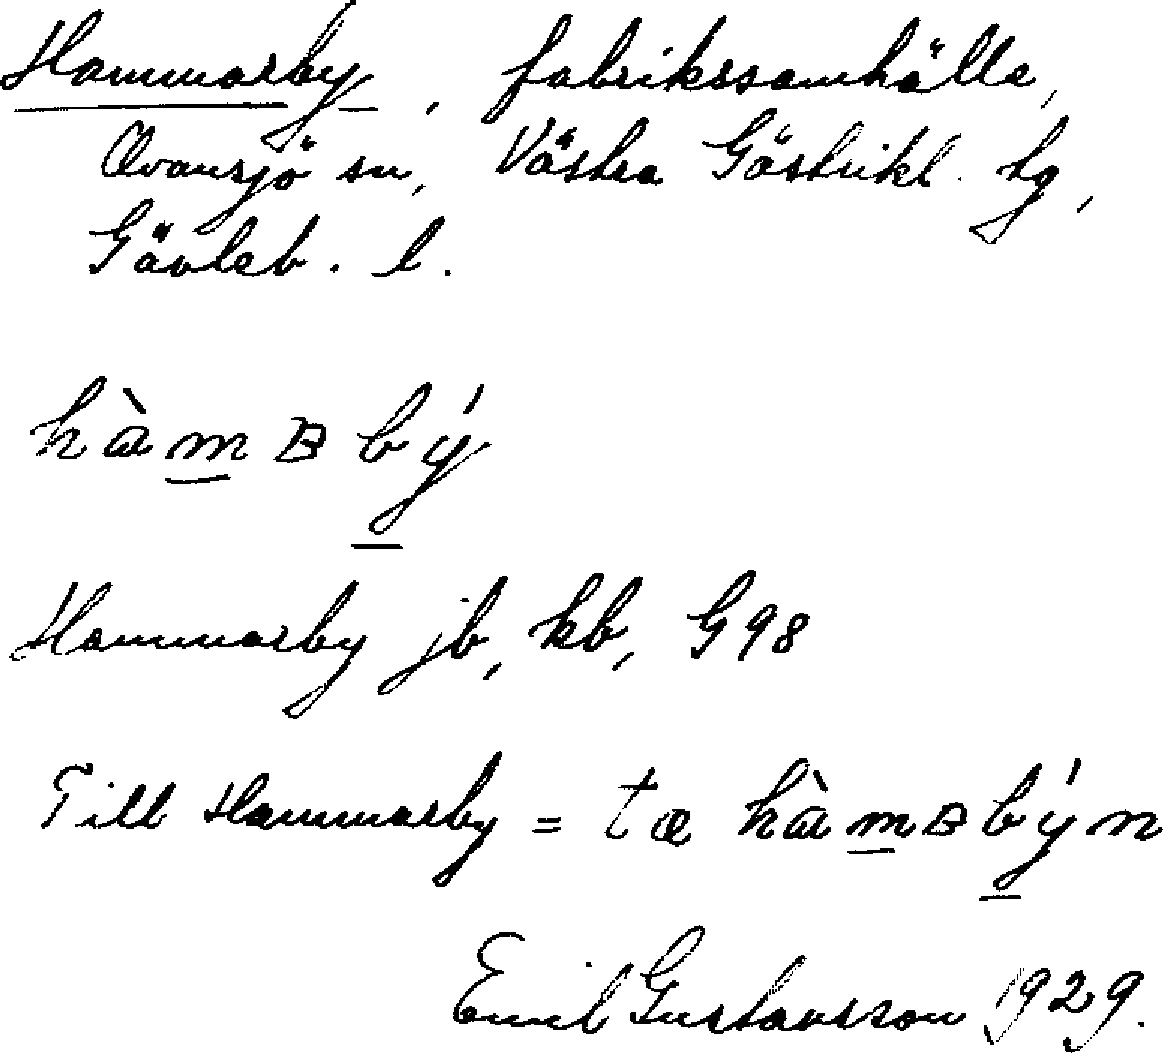 Hammarby, fabrikssamhälle,
Ovansjö sn, Västra Gästrikl. tg,
Gävleb. l.
hàmʙbý
Hammarby jb, kb, G98
Till Hammarby = tæ hàmʙbýn
Emil Gustavsson 1929.